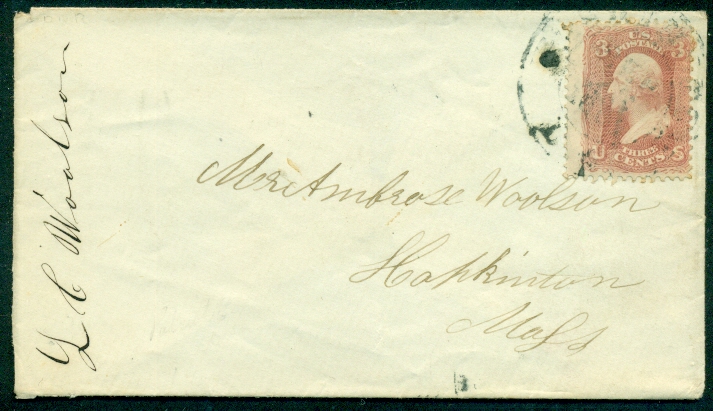 L C Woolson
U.S.
POSTAGE
3 3
THREE
U CENTS S
Mr Ambrose Woolson
Hopkinton
Mass